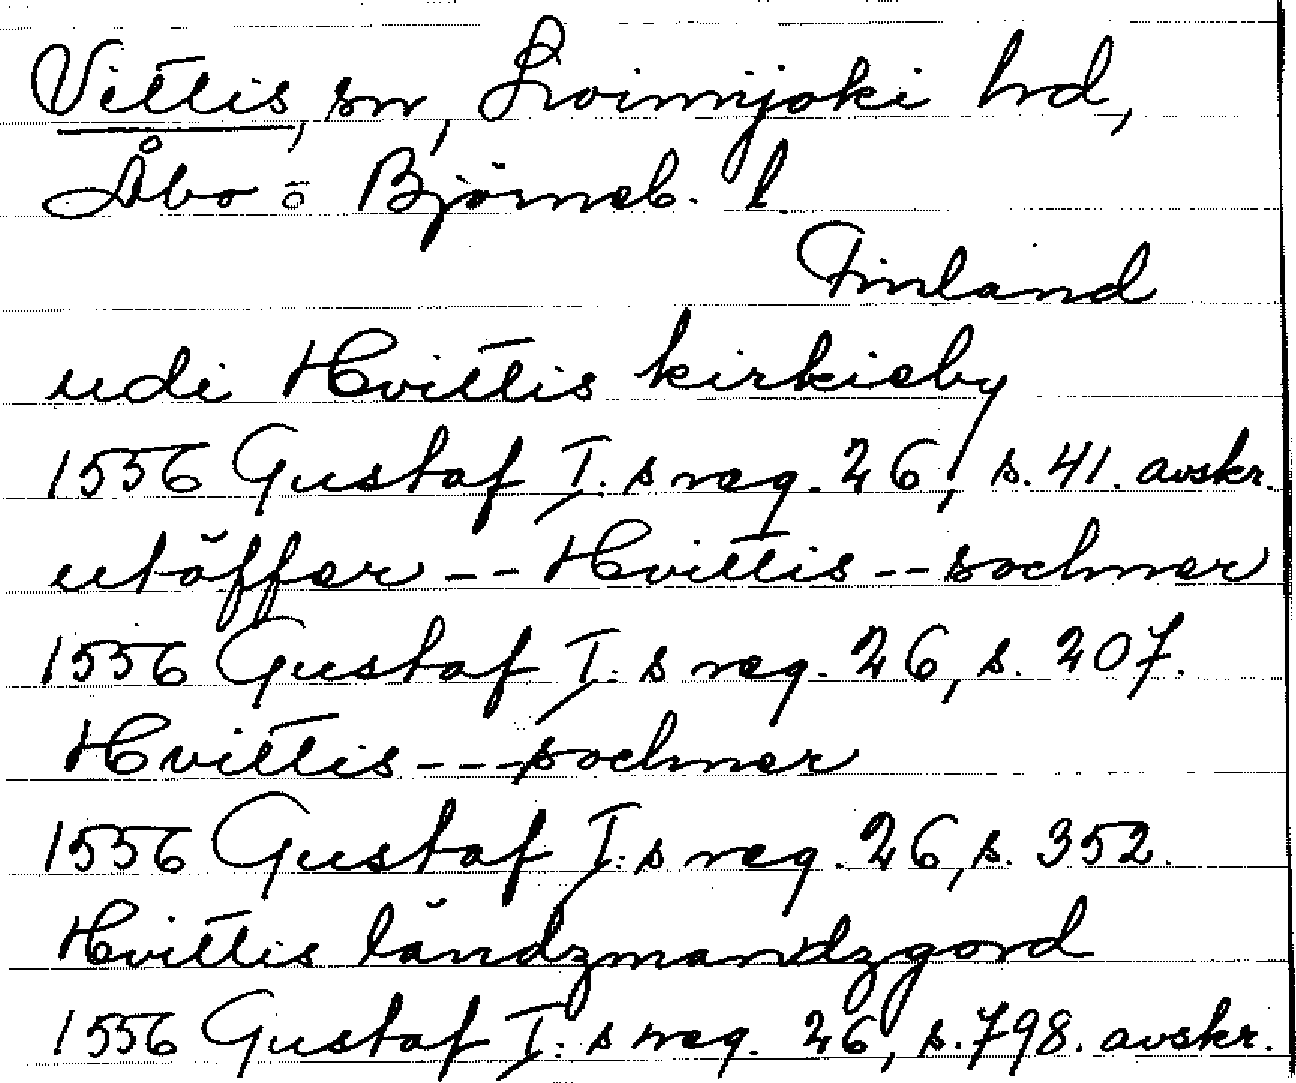 Vittis, sn, Loimijoki hd,
Åbo o Björneb. l.
Finland
udi Hvittis kirkieby
1556 Gustaf I.s reg. 26, s. 41. avskr.
utöffer -- Hvittis -- sochner
1556 Gustaf I.s reg. 26, s. 207.
Hvittis --- sochner
1556 Gustaf I.s reg. 26, s. 352.
Hvittis ländzmandzgord
1556 Gustaf I.s reg. 26, s. 798. avskr.